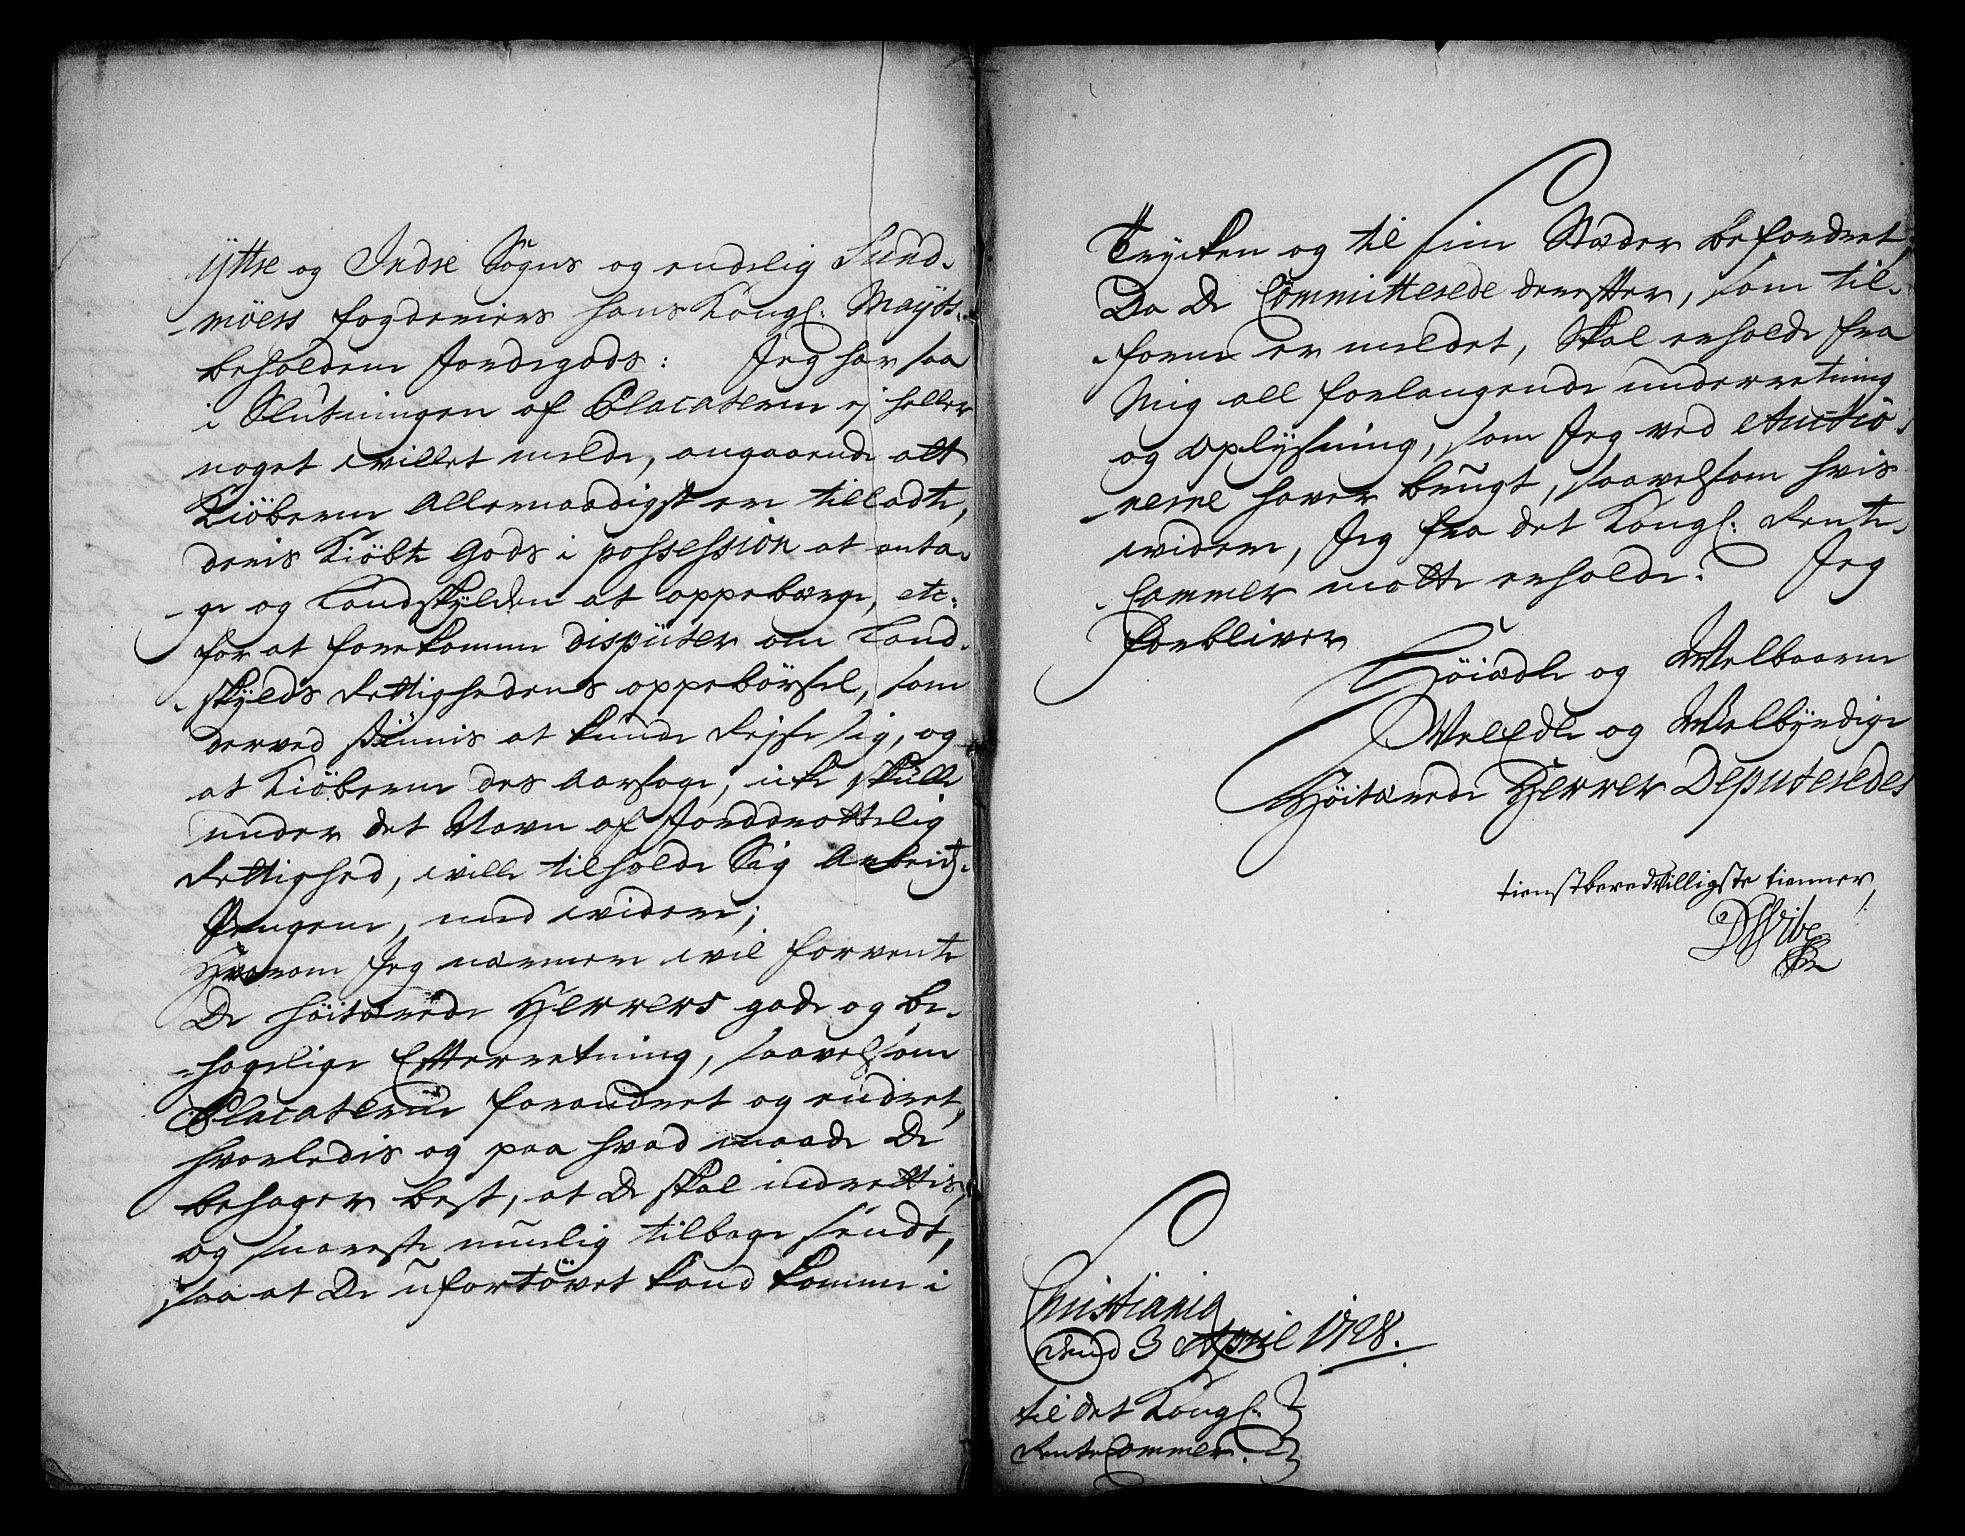 ÿttre og Indre Sogns og endelig Sund-
möers fogderiers hans Kongl: Mayts
beholdene Jordegods: Jeg har saa
i Slutningen af Placaterne ej heller
noget willet melde, angaaende att
Kiöberne Allernaadigst er tilladte,
deris Kiöbte Gods i possession at anta-
ge og Landskÿlden at oppebærge, etc:
for at forekomme disputer om Land-
skÿlds Rettighedens oppebörsel, som
derved siunis at kunde Rejse sig, og
at Kiöberne des aarsage, icke skulle
under det Navn af Jorddrottelig
Rettighed, wille tilholde Sig Arbeids-
Pengene, med widere;
Hvorom Jeg nærmere wil forvente
De höitærede Herrers gode og be-
hagelige Efterretning, saavelsom
Placaterne forandret og endret,
hvorledis og paa hvad maade De
behager best, at De skal indrettis,
og snareste muelig tilbage sendt,
saa at De ufortövet kand komme i
Trycken og til sine Stæder befordret,
Da De Committerede derefter, som til-
forne er meldet, Skal erholde fra
Mig all forlangende underretning
og Oplysning, som Jeg ved Auctio-
nerne haver brugt, saavelsom hvis
widere, Jeg fra det Kongl: Rente-
Cammer motte erholde. Jeg
forbliver
Höiædle og Welbaarne
VelEdle og Welbÿrdige
Höitærede Herrer Deputeredes
tienstberedvilligste tienner,
DVibe
Christiania
dend 3 April 1728.
til det Kongl:
RenteCammer.